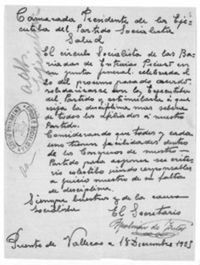 Camarada Presidente de la Eje-
cutiva del Partido Socialista
Salud
El circulo Socialista de las Ba-
rriadas de Entrerias Picazo en
su junta general celebrada el
20 del proximo pasado acordó
solidarizarse con la Ejecutiva
del Partido, y estimularle a que
siga la disciplina mas severa
de todos los afiliados a nuestro
Partido.
Considerando que todos y cada
uno tienen facilidades dentro
de los Congresos de nuestro
Partido para exponer su crite-
rio
a juicio nuestro de su falta
de disciplina.
Siempre vuestro y de la causa
socialista
El Secretario
Puente de Vallecas a 18 Diciembre 1935